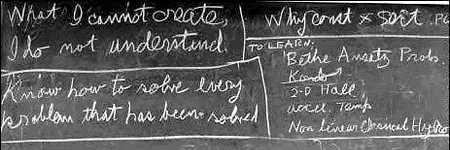 What I cannot create,
I do not understand.
Know how to solve every
problem that has been solved
Why const × sort .PG
TO LEARN:
Bethe Ansatz Probs.
Kondo
2-D Hall
accel. Temp
Non Linear Classical Hydro